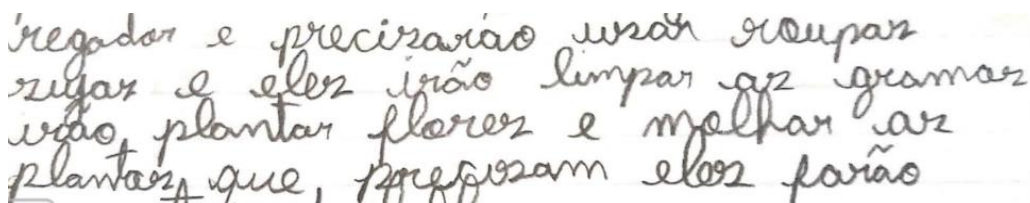 regador e precisarão usar roupas
sujas e eles irão limpar as gramas
irão, plantar flores e molhar as
plantas, que, precisam eles farão